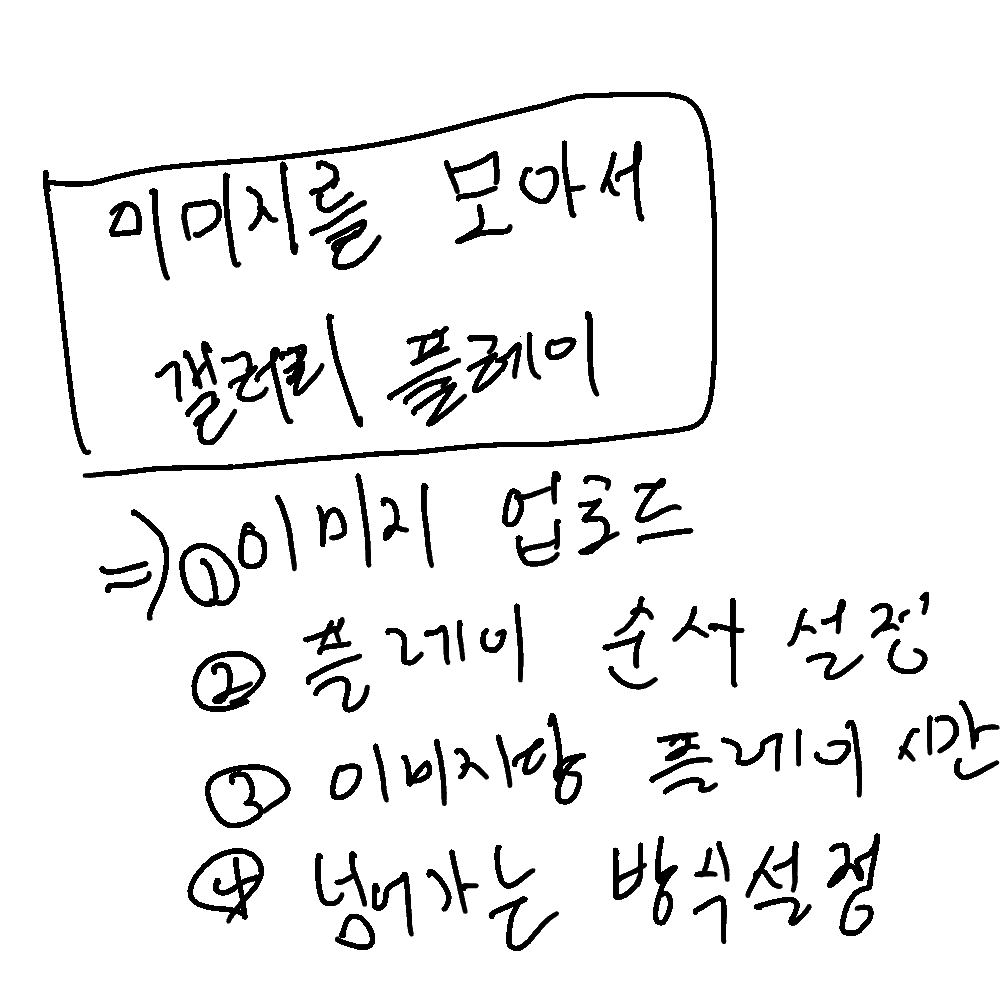 이미지를 모아서
갤러리 플레이
⇒ ① 이미지 업로드
② 플레이 순서 설정
③ 이미지당 플레이 시간
④ 넘어가는 방식설정